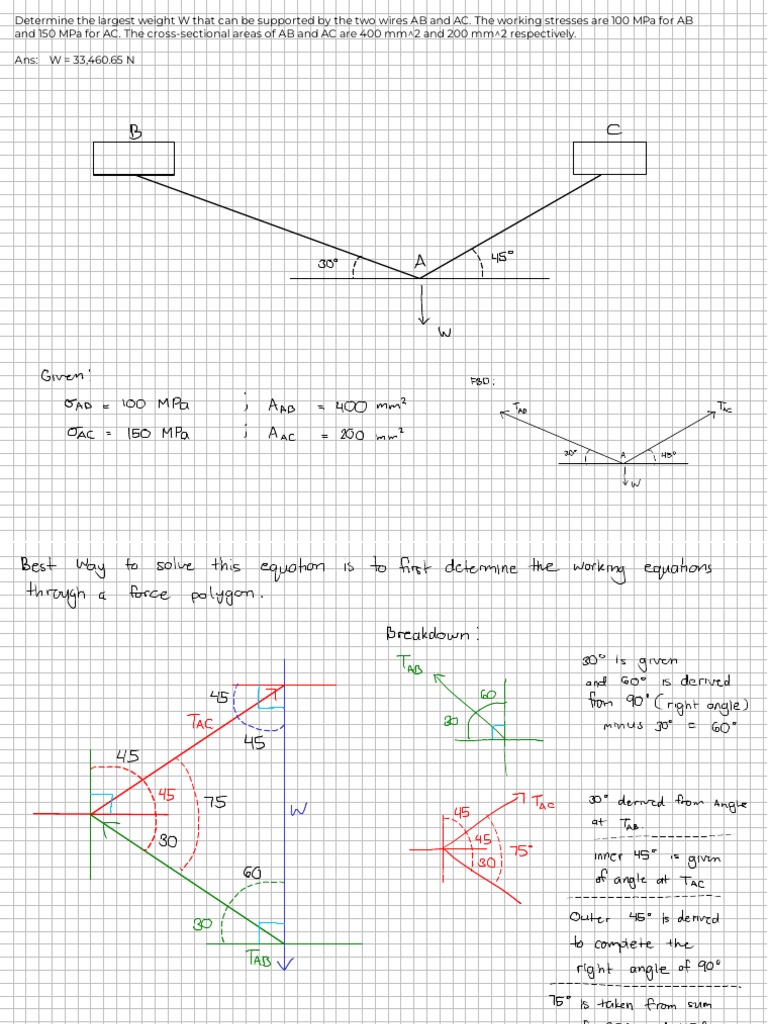 Determine the largest weight W that can be supported by the two wires AB and AC. The working stresses are 100 MPa for AB
and 150 MPa for AC. The cross-sectional areas of AB and AC are 400 mm^2 and 200 mm^2 respectively.
Ans: W = 33,460.65 N
B
C
30°
A
45°
W
Given:
σAB = 100 MPa ; AAB = 400 mm²
σAC = 150 MPa ; AAC = 200 mm²
FBD:
TAB
TAC
30°
A
45°
W
Best way to solve this equation is to first determine the working equations
through a force polygon.
Breakdown:
45
TAC
45
45
45
75
30
W
60
30
TAB
TAB
60
30
30° is given
and 60° is derived
from 90° (right angle)
minus 30° = 60°
45
TAC
45
30
75°
30° derived from Angle
at TAB.
inner 45° is given
of angle at TAC
Outer 45° is derived
to complete the
right angle of 90°
75° is taken from sum